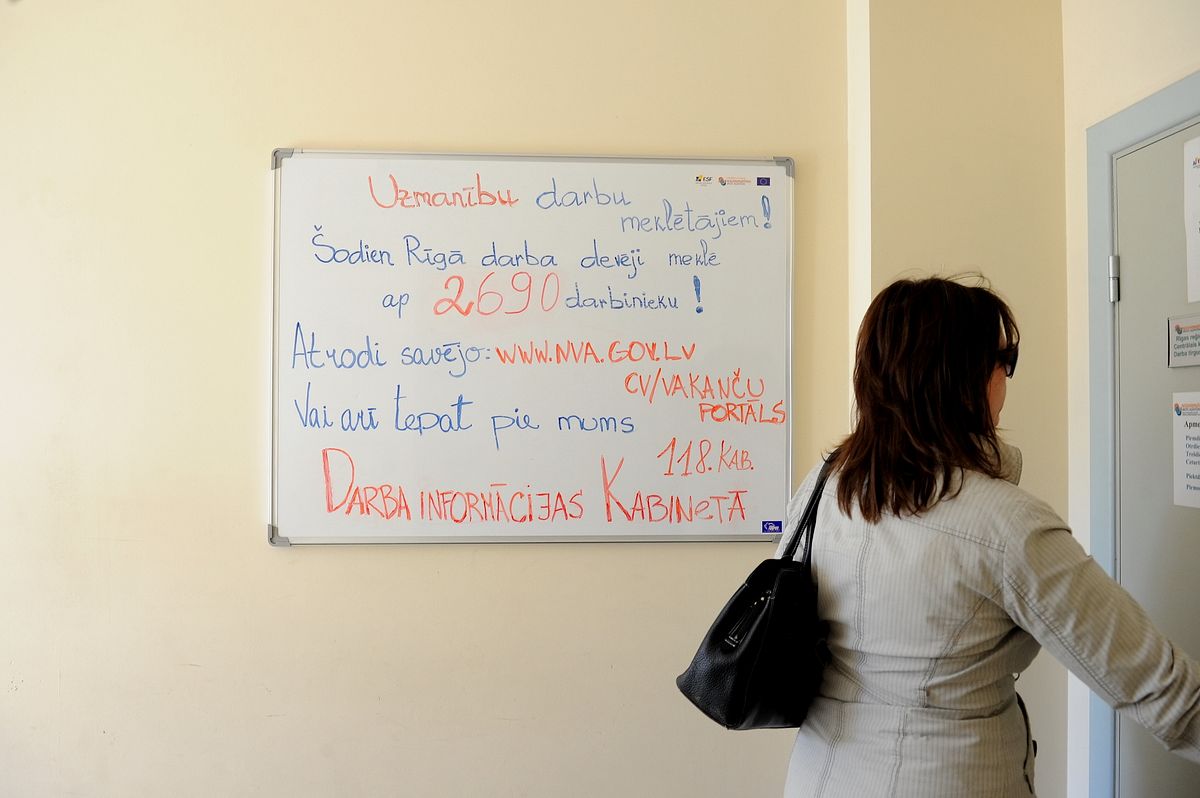 Uzmanību darbu
meklētājiem!
Šodien Rīgā darba devēji meklē
ap 2690 darbinieku!
Atrodi savējo: WWW.NVA.GOV.LV
CV/VAKANČU
PORTĀLS
Vai arī tepat pie mums
118. KAB.
DARBA INFORMĀCIJAS KABINETĀ
ESF
Rīgas reģi
Centrālais k
Darba tirgu
Apme
Pirmd
Otrdie
Trešdi
Ceturt
Piektd
Pirms